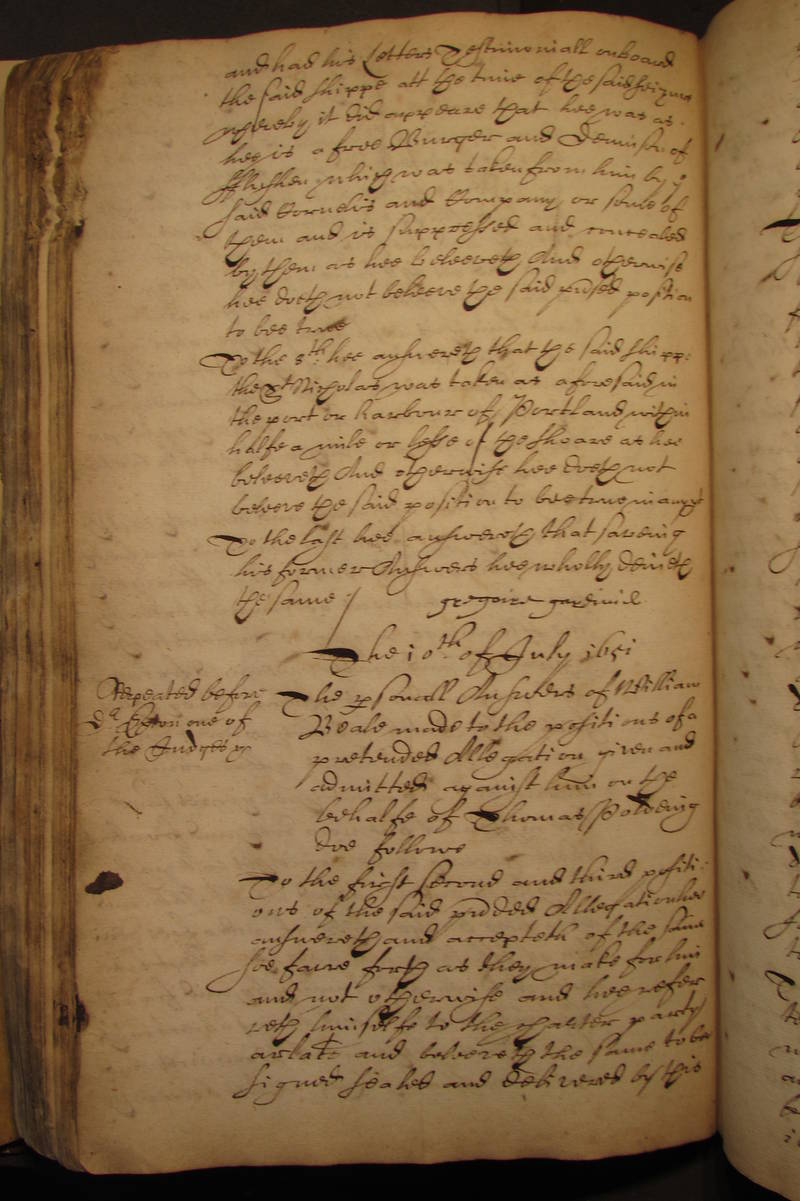 and had his Letters Testimoniall onboard
the said shippe att the time of the said seizure
whereby it did appeare that hee was as
hee is a free Burger and Denison of
fflushen which was taken from him by ye
said Cornelis and Company or some of
them and is suppressed and concealed
by them as hee beleeveth And otherwise
hee doeth not beleeve the said prtnsed position
to bee true
To the 8th. hee answereth that the said shippe
the St Nicholas was taken as aforesaid in
the port or harbour of Portland within
halfe a mile or lesse of the shoare as hee
beleeveth And otherwise hee doeth not
beleeve the said position to bee true in any pt
To the last hee answereth that saveing
his former Answers hee wholly denieth
the same /
The 10th of July 1651
Repeated before
Dr. one of
the Judges
The psonall Answers of William
Beale made to the positions of a
pretended Allegation given and
admitted against him on the
behalfe of Thomas
doe followe
To the first second and third positi-
ons of the said prtded Allegation hee
answereth and accepteth of the same
soe farre forth as they make for him
and not otherwise and hee refer
reth himselfe to the charter party
arlate and beleeveth the same to bee
signed sealed and delivered by this